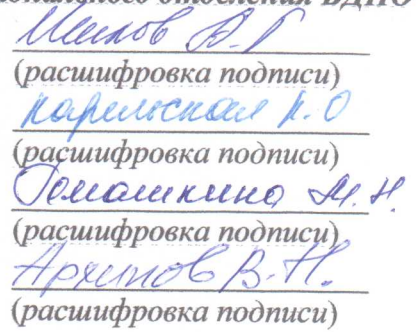 отделения ВДПО
Шилов В.Г
(расшифровка подписи)
Карельская К.О
(расшифровка подписи)
Ромашкина М.Н.
(расшифровка подписи)
Архипов В.Н.
(расшифровка подписи)